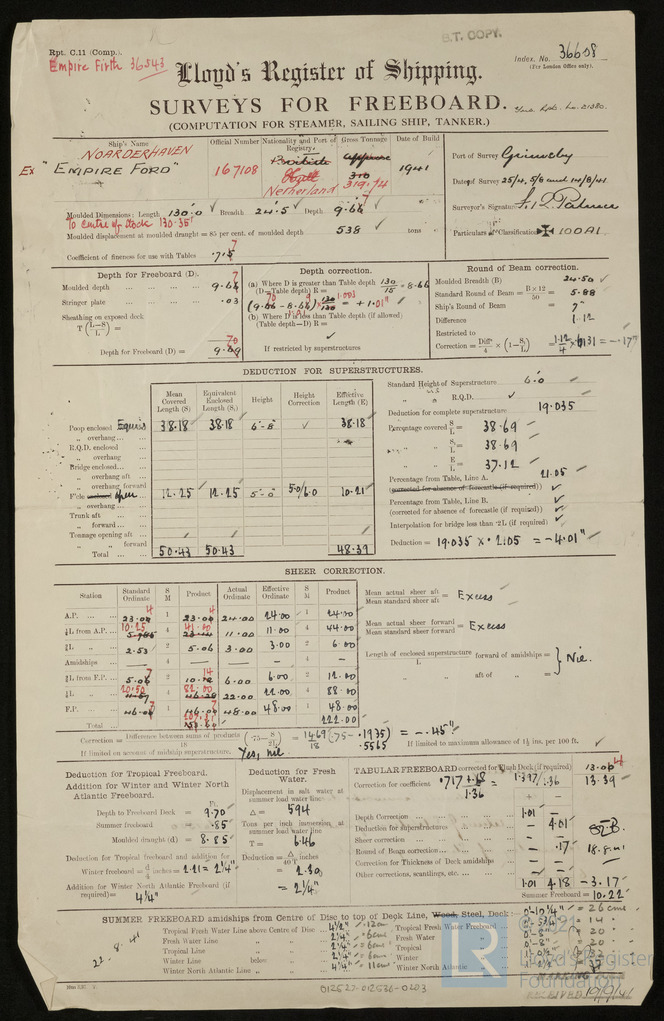 B.T. COPY.
Rpt. C.11 (Comp.).
Empire Firth 36543
Index. No. 36608
(For London Office only).
Lloyd's Register of Shipping.
SURVEYS FOR FREEBOARD.
(COMPUTATION FOR STEAMER, SAILING SHIP, TANKER.)
Ship's Name
NOARDERHAVEN
Ex "EMPIRE FORD"
Official Number
167108
Nationality and Port of Registry.
British
Netherland
Gross Tonnage
Approx
310
319.74
Date of Build
1941
Port of Survey Grimsby
Date of Survey 25/4, 5/8 and 14/8/41
Surveyor's Signature
Particulars of Classification 100A1
Moulded Dimensions: Length 130.0 Breadth 24.5 Depth 9.66
To Centre of Stock 130.35'
Moulded displacement at moulded draught = 85 per cent. of moulded depth 538 tons
Coefficient of fineness for use with Tables .75
Depth for Freeboard (D).
Moulded depth 9.66
Stringer plate .03
Sheathing on exposed deck
T (L-S/L) =
Depth for Freeboard (D) = 9.69
Depth correction.
(a) Where D is greater than Table depth 130/15 = 8.66
(D-Table depth) R =
(9.66 - 8.66) = + 1.01"
(b) Where D is less than Table depth (if allowed)
(Table depth-D) R =
If restricted by superstructures
Round of Beam correction.
Moulded Breadth (B) 24.50
Standard Round of Beam = B×12/50 = 5.88
Ship's Round of Beam = 7"
Difference 1.12
Restricted to
Correction = Diff/4 × (1-S₁/L) = 1.12/4 × .6131 = -.17"
DEDUCTION FOR SUPERSTRUCTURES.
Mean Covered Length (S)
Equivalent Enclosed Length (S₁)
Height
Height Correction
Effective Length (E)
Poop enclosed Equiv 38.18 38.18 6-8 38.18
„ overhang
R.Q.D. enclosed
„ overhang
Bridge enclosed
„ overhang aft
„ overhang forward
F'cle enclosed open 12.25 12.25 5-0 5.0/6.0 10.21
„ overhang
Trunk aft
„ forward
Tonnage opening aft
„ „ forward
Total 50.43 50.43 48.39
Standard Height of Superstructure 6.0
„ „ R.Q.D.
Deduction for complete superstructure 19.035
Percentage covered S/L = 38.69
„ „ S₁/L = 38.69
„ „ E/L = 37.12
Percentage from Table, Line A. 21.05
(corrected for absence of forecastle (if required))
Percentage from Table, Line B.
(corrected for absence of forecastle (if required))
Interpolation for bridge less than ·2L (if required)
Deduction = 19.035 × .2105 = -4.01"
SHEER CORRECTION.
Station
Standard Ordinate
S M
Product
Actual Ordinate
Effective Ordinate
S M
Product
A.P. 23.00 4 1 23.00 4 24.00 24.00 1 24.00
⅙L from A.P. 10.25 4 41.00 11.00 11.00 4 44.00
⅓L „ 2.53 2 5.06 3.00 3.00 2 6.00
Amidships — 4 — — — 4 —
⅓L from F.P. 5.06 7 2 10.12 14 6.00 6.00 2 12.00
⅙L „ 20.50 4 82.00 22.00 22.00 4 88.00
F.P. 46.00 7 1 46.00 7 48.00 48.00 1 48.00
Total 222.00
Mean actual sheer aft
Mean standard sheer aft = Excess
Mean actual sheer forward
Mean standard sheer forward = Excess
Length of enclosed superstructure forward of amidships =
L
„ „ aft of „ = } Nil.
Correction = Difference between sums of products/18 (·75 - S/2L) = 14.69/18 (.75 - .1935) .5565 = -.45"
If limited on account of midship superstructure. Yes, nil
If limited to maximum allowance of 1½ ins. per 100 ft.
Deduction for Tropical Freeboard.
Addition for Winter and Winter North Atlantic Freeboard.
Ft.
Depth to Freeboard Deck = 9.70
Summer freeboard = .85
Moulded draught (d) = 8.85
Deduction for Tropical freeboard and addition for
Winter freeboard = d/4 inches = 2.21 = 2¼"
Addition for Winter North Atlantic Freeboard (if required) =
4¼"
Deduction for Fresh Water.
Displacement in salt water at summer load water line
Δ = 594
Tons per inch immersion at summer load water line
T = 6.46
Deduction = Δ/40T inches
= 2.30
= 2¼"
TABULAR FREEBOARD corrected for Flush Deck (if required) 13.06
Correction for coefficient .717+.68/1.36 = 1.397/1.36 13.39
+ -
Depth Correction 1.01 —
Deduction for superstructures — 4.01
Sheer correction — —
Round of Beam correction — .17
Correction for Thickness of Deck amidships — —
Other corrections, scantlings, etc. — —
1.01 4.18 -3.17
Summer Freeboard = 10.22
SUMMER FREEBOARD amidships from Centre of Disc to top of Deck Line, Wood, Steel, Deck:-
0'-10¼" = 26 cms
Tropical Fresh Water Line above Centre of Disc 4½" 12cm
Fresh Water Line „ „ 2¼" 6cms
Tropical Line „ „ 2¼"
Winter Line below „ 2¼" 6cm
Winter North Atlantic Line „ „ 4¼" 11cm
Tropical Fresh Water Freeboard 14
Fresh Water „ 0'-8" 20
Tropical „ 0'-8" 20
Winter „ 32
Winter North Atlantic „ 37
22.8.41
012527-012536-0203
© 2021
LR
Lloyd's Register
Foundation
RECEIVED 10/9/41